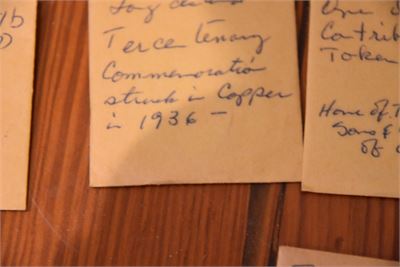 Tercentenary
Commemoration
struck in Copper
in 1936 -
One
Contrib
Token
Home of T
Sons &
of